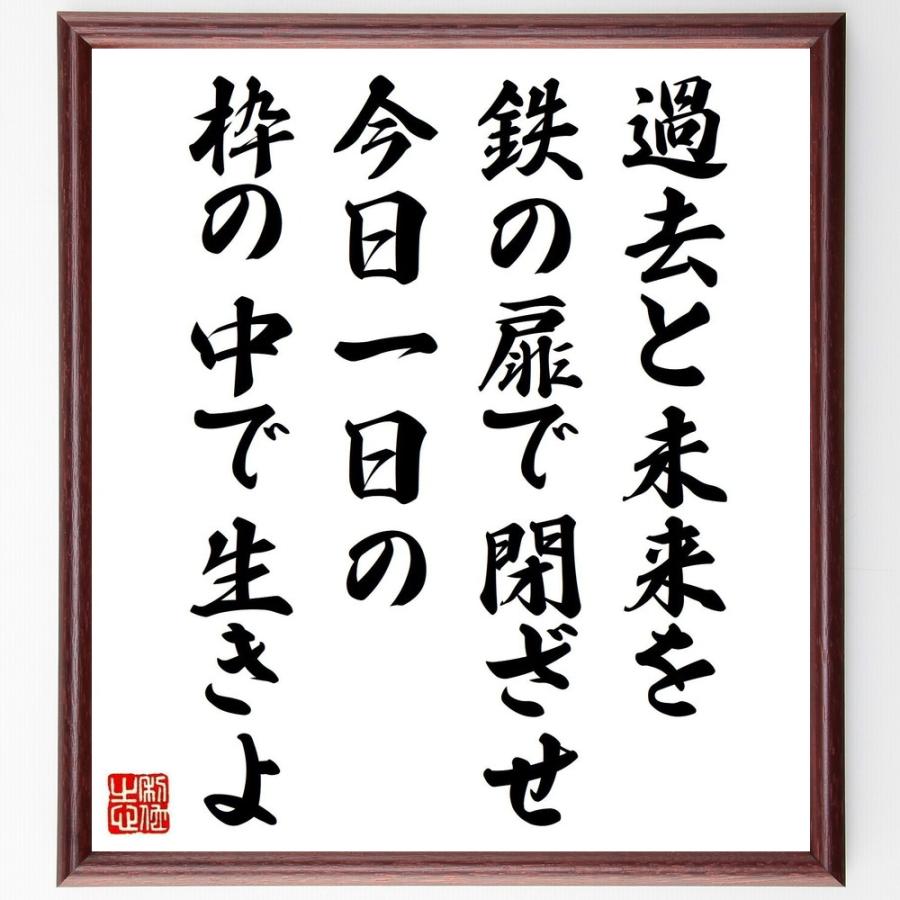 過去と未来を
鉄の扉で閉ざせ
今日一日の
枠の中で生きよ